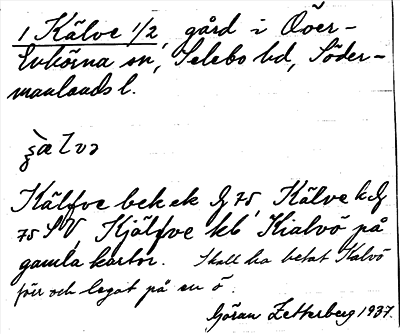 1 Kälve 1/2, gård i Över-
Enhörna sn, Selebo hd, Söder-
manlands l.
Kälfve bek ek Gg 75, Kälve h Gg
75 SV, Kjälfve kb, Kialvö på
gamla kartor. Skall ha hetat Kalvö
förr och legat på en ö.
Göran Zetterberg 1937.